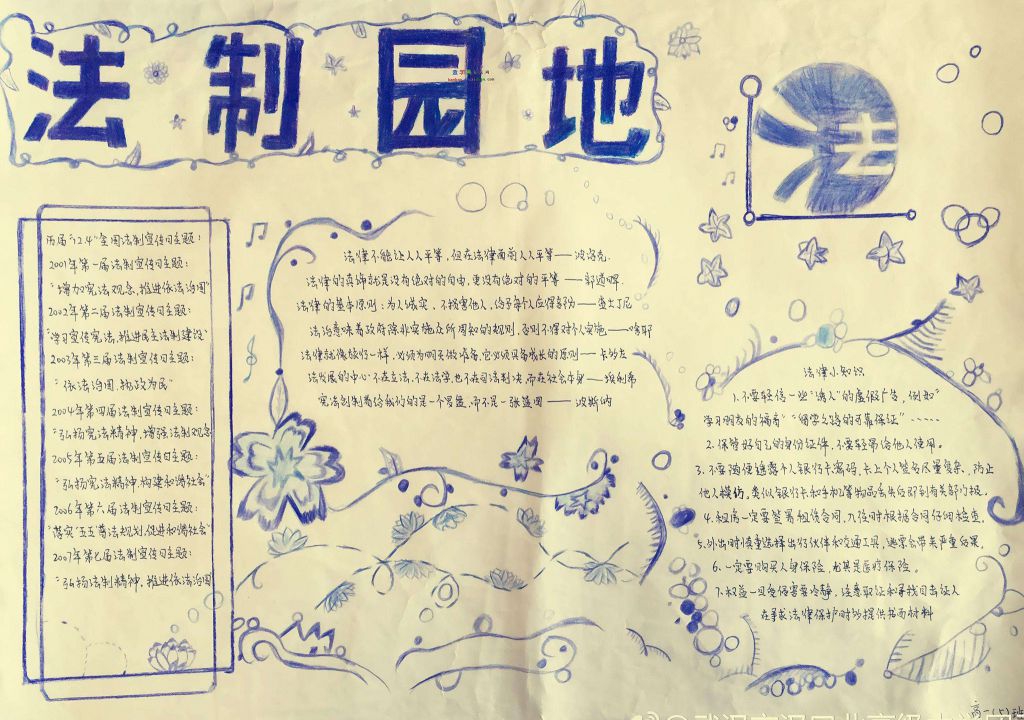 法制园地
法
历届“12.4”全国法制宣传日主题：
2001年第一届法制宣传日主题：
“增加宪法观念，推进依法治国”
2002年第二届法制宣传日主题：
“学习宣传宪法，推进民主法制建设”
2003年第三届法制宣传日主题：
“依法治国，执政为民”
2004年第四届法制宣传日主题：
“弘扬宪法精神，增强法制观念
2005年第五届法制宣传日主题：
“弘扬宪法精神，构建和谐社会”
2006年第六届法制宣传日主题：
“落实“五五”普法规划，促进和谐社会”
2007年第七届法制宣传日主题：
“弘扬法制精神，推进依法治国
法律不能让人人平等，但在法律面前人人平等——波洛克
法律的真谛就是没有绝对的自由，更没有绝对的平等——郭道晖
法律的基本原则：为人诚实，不损害他人，给予每个人应得部分——查士丁尼
法治意味着政府除非实施众所周知的规则，否则不得对个人实施——哈耶
法律就像旅行一样，必须为明天做准备，它必须具备成长的原则——卡多左
法发展的中心不在立法，不在法学，也不在司法判决，而在社会本身——埃利希
宪法创制者给我们的是一个罗盘，而不是一张蓝图——波斯纳
法律小知识
1.不要轻信一些“诱人”的虚假广告，例如“
学习朋友的福音”“留学之路的可靠保证”……
2.保管好自己的身份证件，不要轻易给他人使用。
3.不要随便透露个人银行卡密码，卡上个人签名尽量复杂，防止
他人模仿，类似银行卡和手机等物品丢失后即到有关部门报。
4.租房一定要签署租赁合同，入住时根据合同仔细检查。
5.外出时慎重选择出行伙伴和交通工具，通常会带来严重后果。
6.一定要购买人身保险，尤其是医疗保险。
7.权益一旦受侵害要冷静，注意取证和寻找目击证人
在寻求法律保护时以提供书面材料
高一(5)班